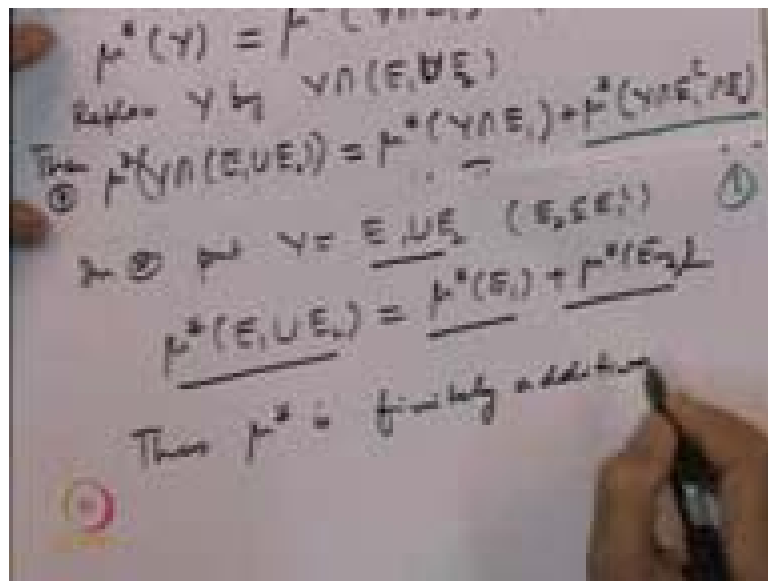 μ*(Y) = μ*(Y∩E₁)
Replace Y by Y∩(E₁∪E₂)
Then ② μ*(Y∩(E₁∪E₂)) = μ*(Y∩E₁) + μ*(Y∩E₁ᶜ∩E₂)
①
In ② put Y = E₁∪E₂ (E₂⊆E₁ᶜ)
μ*(E₁∪E₂) = μ*(E₁) + μ*(E₂)
Thus μ* is finitely additive